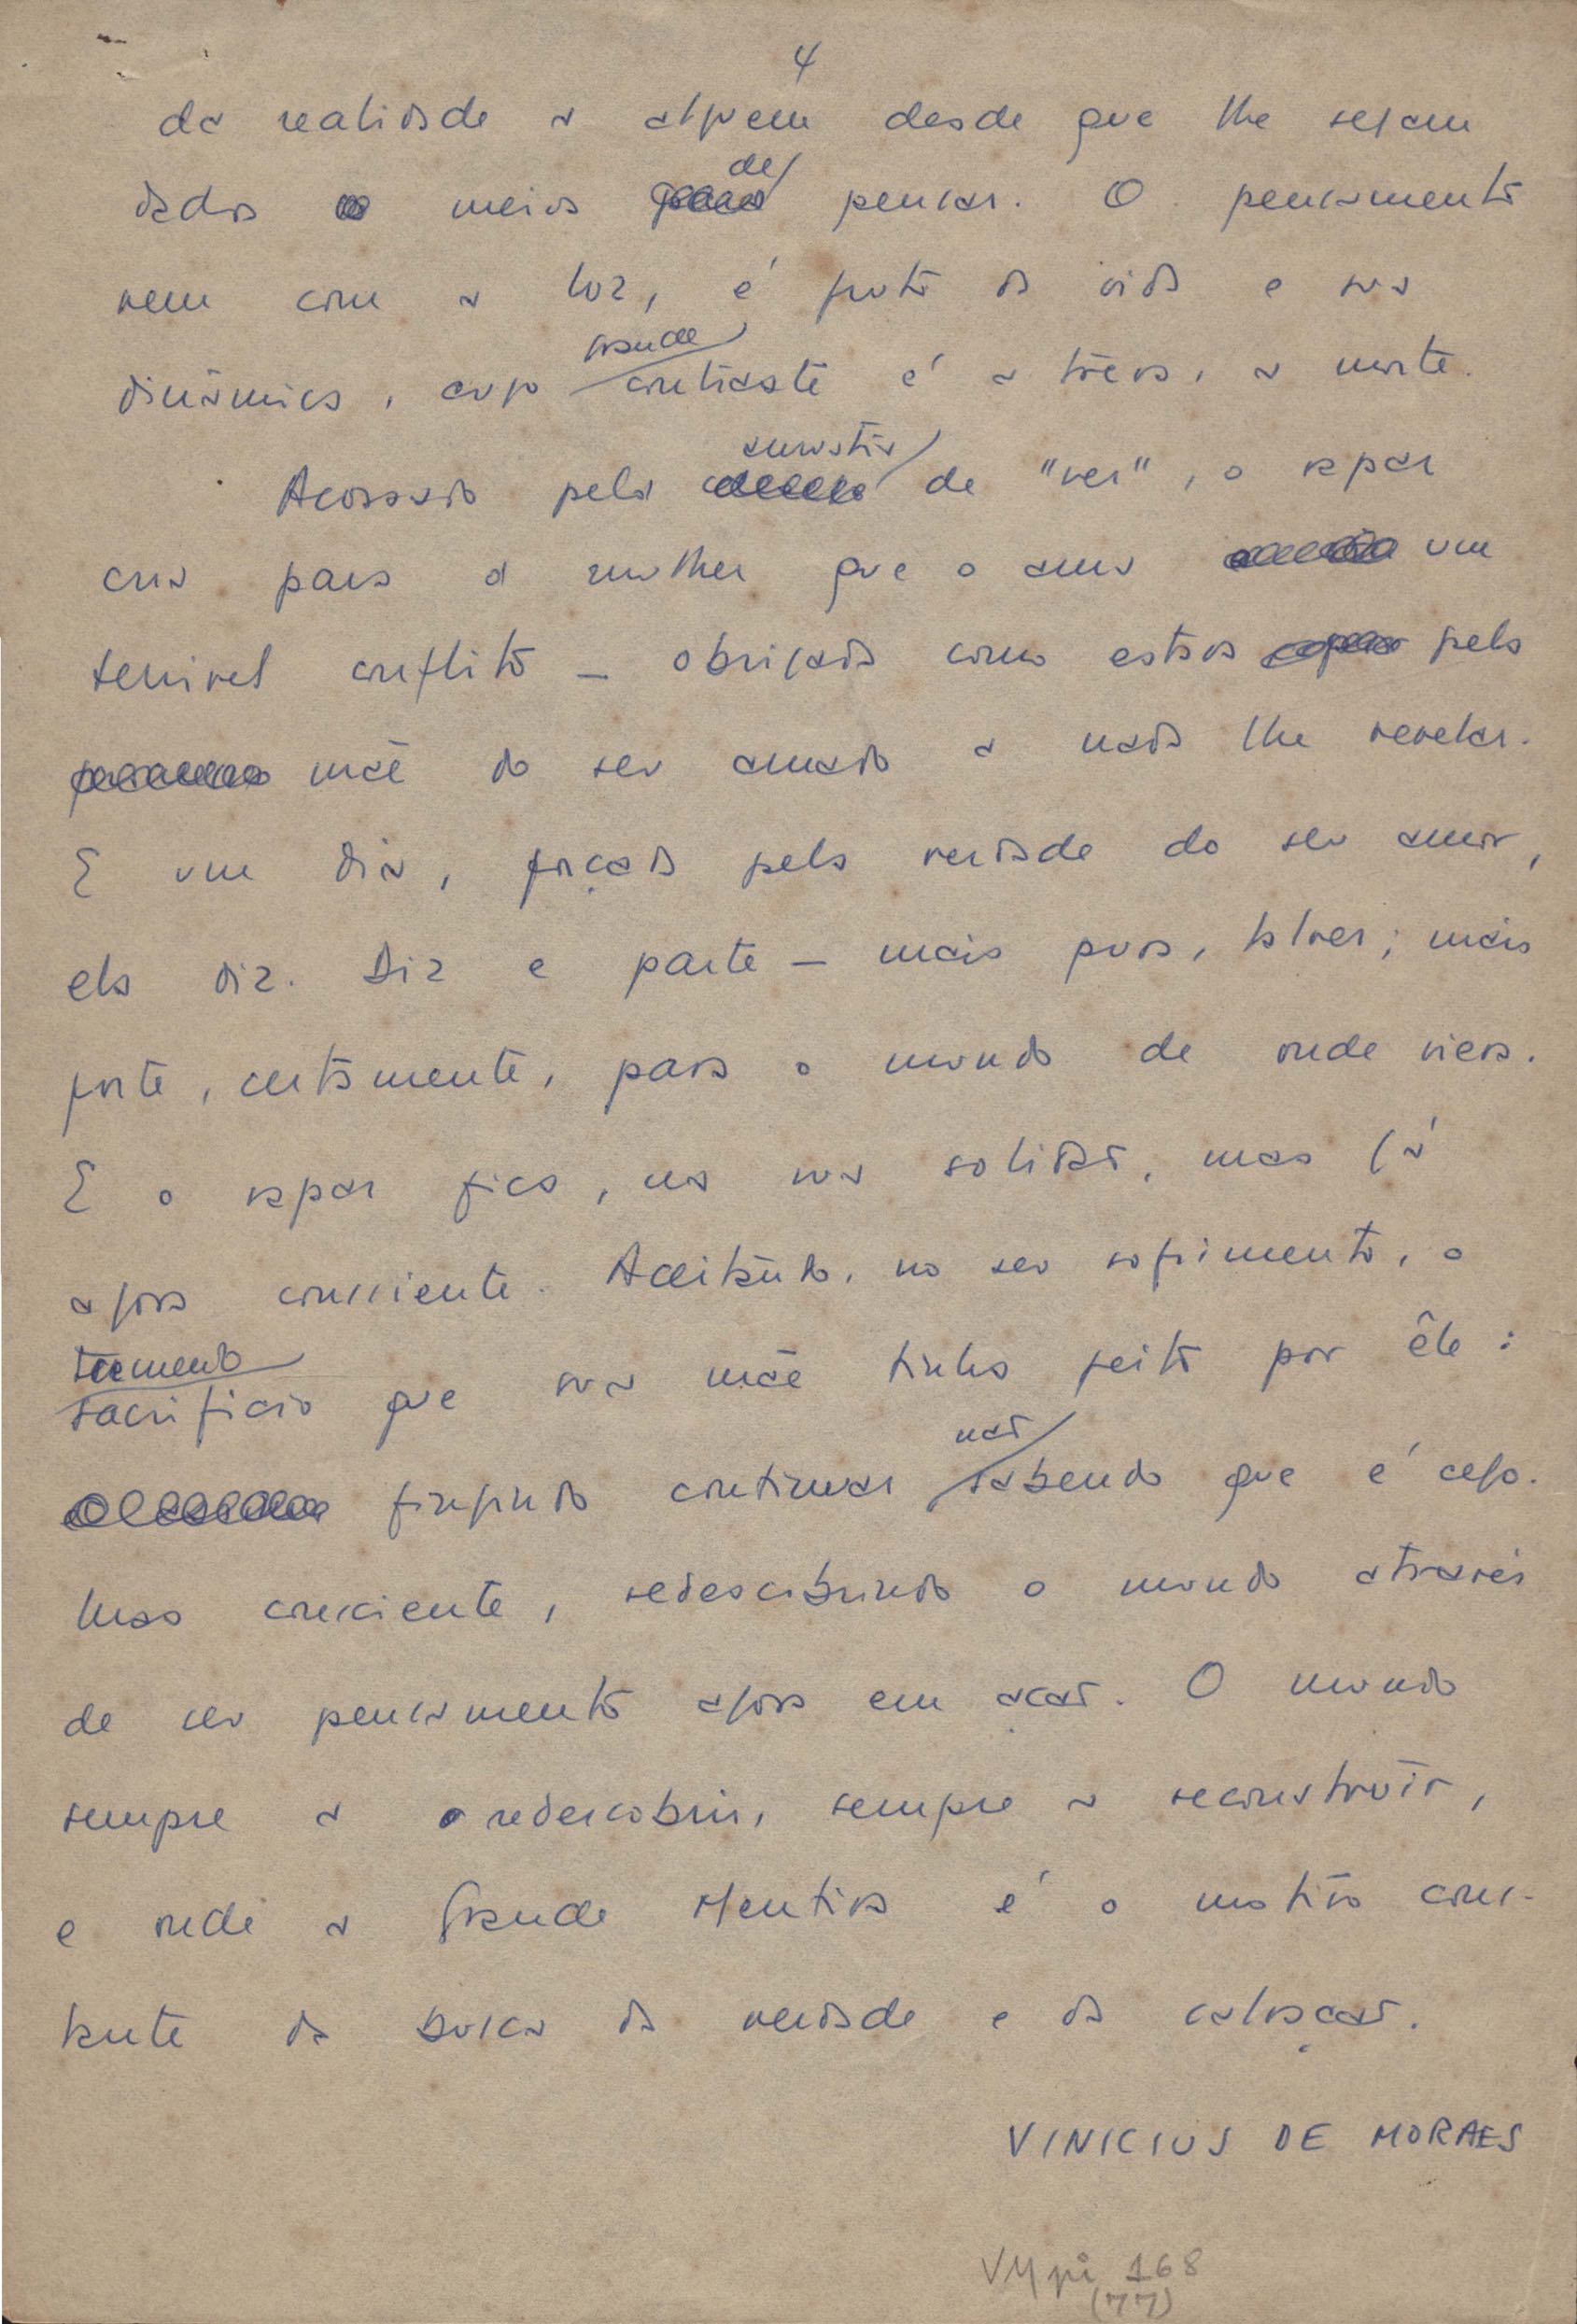 4
da realidade a alguem desde que lhe sejam
dados meios de pensar. O pensamento
vem com a luz, é fruto da vida e sua
dinâmica, cujo grande contraste é a treva, a morte.
Acossado pela angústia de "ver", o rapaz
cria para a mulher que o ama um
terrivel conflito — obrigada como estava pela
mãe do seu amado a nada lhe revelar.
E um dia, forçada pela verdade do seu amor,
ela diz. Diz e parte — mais pura, talvez; mais
forte, certamente, para o mundo de onde viera.
E o rapaz fica, na sua solidão, mas já
agora consciente. Aceitando, no seu sofrimento, o
tremendo sacrificio que sua mãe tinha feito por êle:
fingindo continuar não sabendo que é cego.
Mas consciente, redescobrindo o mundo através
de seu pensamento agora em ação. O mundo
sempre a redescobrir, sempre a reconstruir,
e onde a Grande Mentira é o motivo cons-
tante da busca da verdade e da salvação.
VINICIUS DE MORAES
VMpi 168
(77)